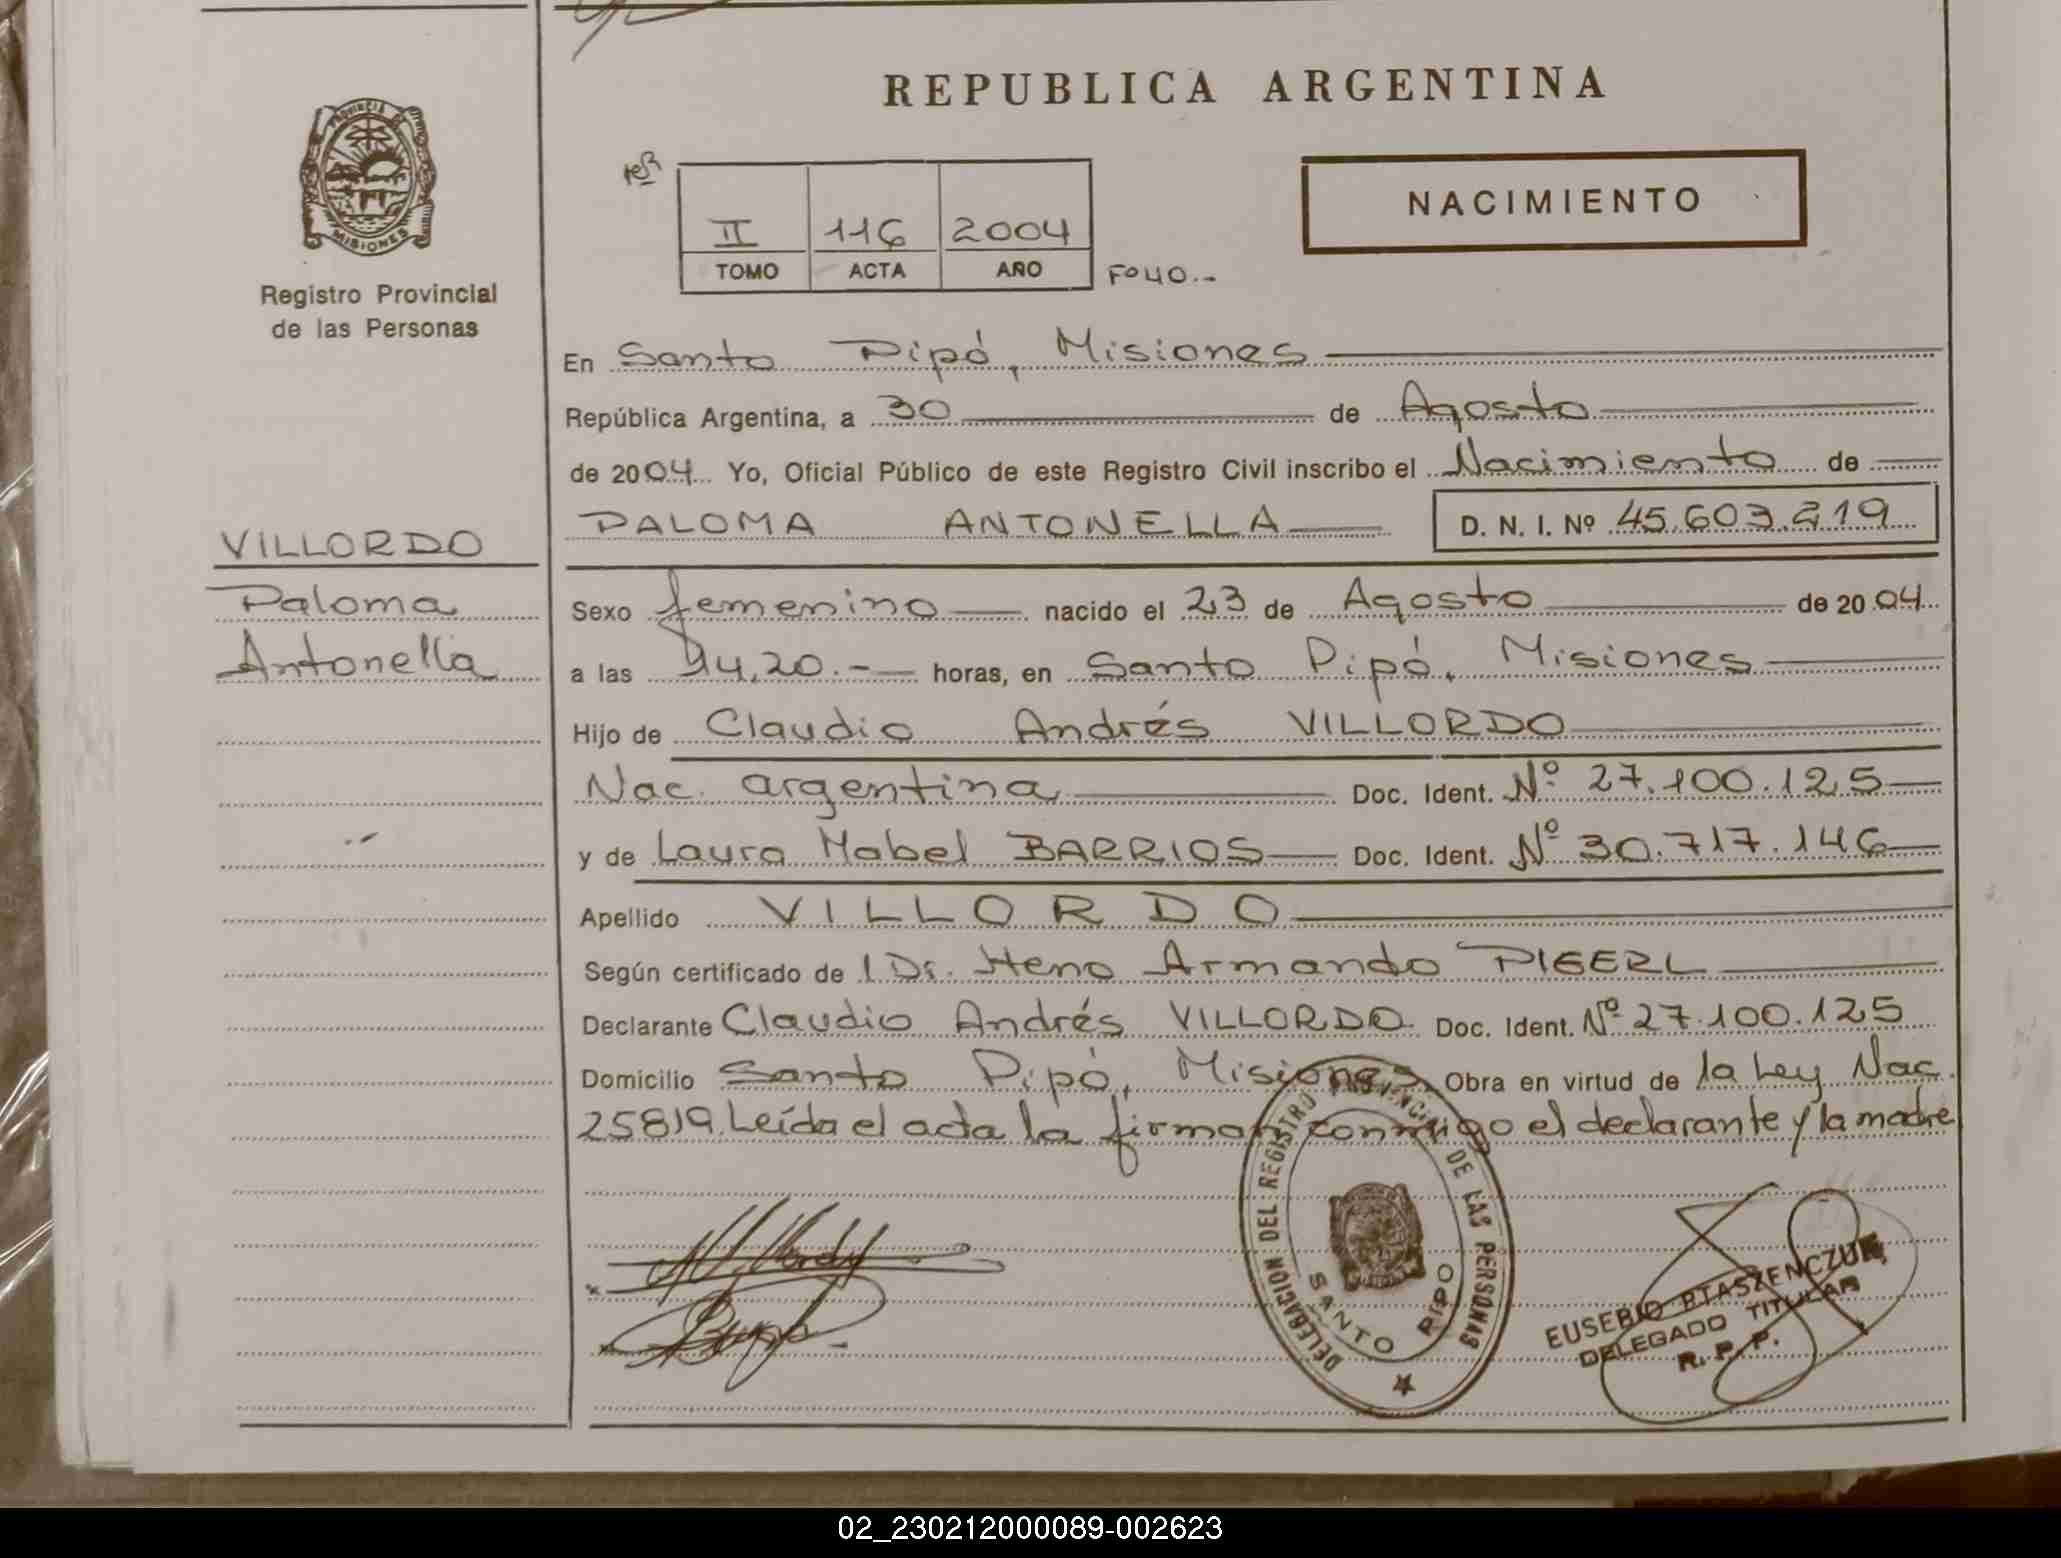 REPUBLICA ARGENTINA
PROVINCIA DE
MISIONES
Registro Provincial
de las Personas
NACIMIENTO
II 116 2004
TOMO ACTA AÑO Fº40.-
En Santo Pipó, Misiones
República Argentina, a 30 de Agosto
de 2004 Yo, Oficial Público de este Registro Civil inscribo el Nacimiento de
PALOMA ANTONELLA D. N. I. Nº 45.603.219
VILLORDO
Paloma
Antonella
Sexo femenino nacido el 23 de Agosto de 2004
a las 14,20.- horas, en Santo Pipó, Misiones
Hijo de Claudio Andrés VILLORDO
Nac. argentina Doc. Ident. Nº 27.100.125
y de Laura Mabel BARRIOS Doc. Ident. Nº 30.717.146
Apellido VILLORDO
Según certificado de l Dr. Heno Armando PIGERL
Declarante Claudio Andrés VILLORDO Doc. Ident. Nº 27.100.125
Domicilio Santo Pipó, Misiones Obra en virtud de la Ley Nac.
25819. Leída el acta la firman conmigo el declarante y la madre
DELEGACION DEL REGISTRO PROVINCIAL DE LAS PERSONAS
SANTO PIPO
EUSEBIO PTASZENCZUK
DELEGADO TITULAR
R. P. P.
02_230212000089-002623